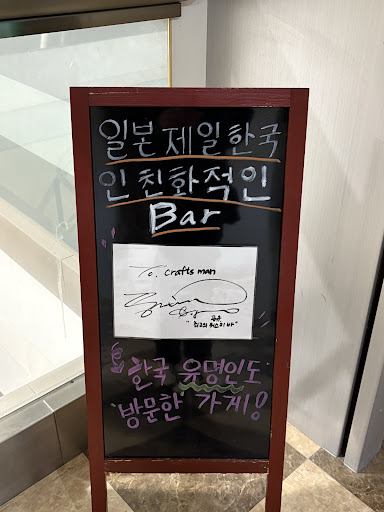 일본 제일 한국
인 친화적인
Bar
To. crafts man
한국 유명인도
방문한 가게!